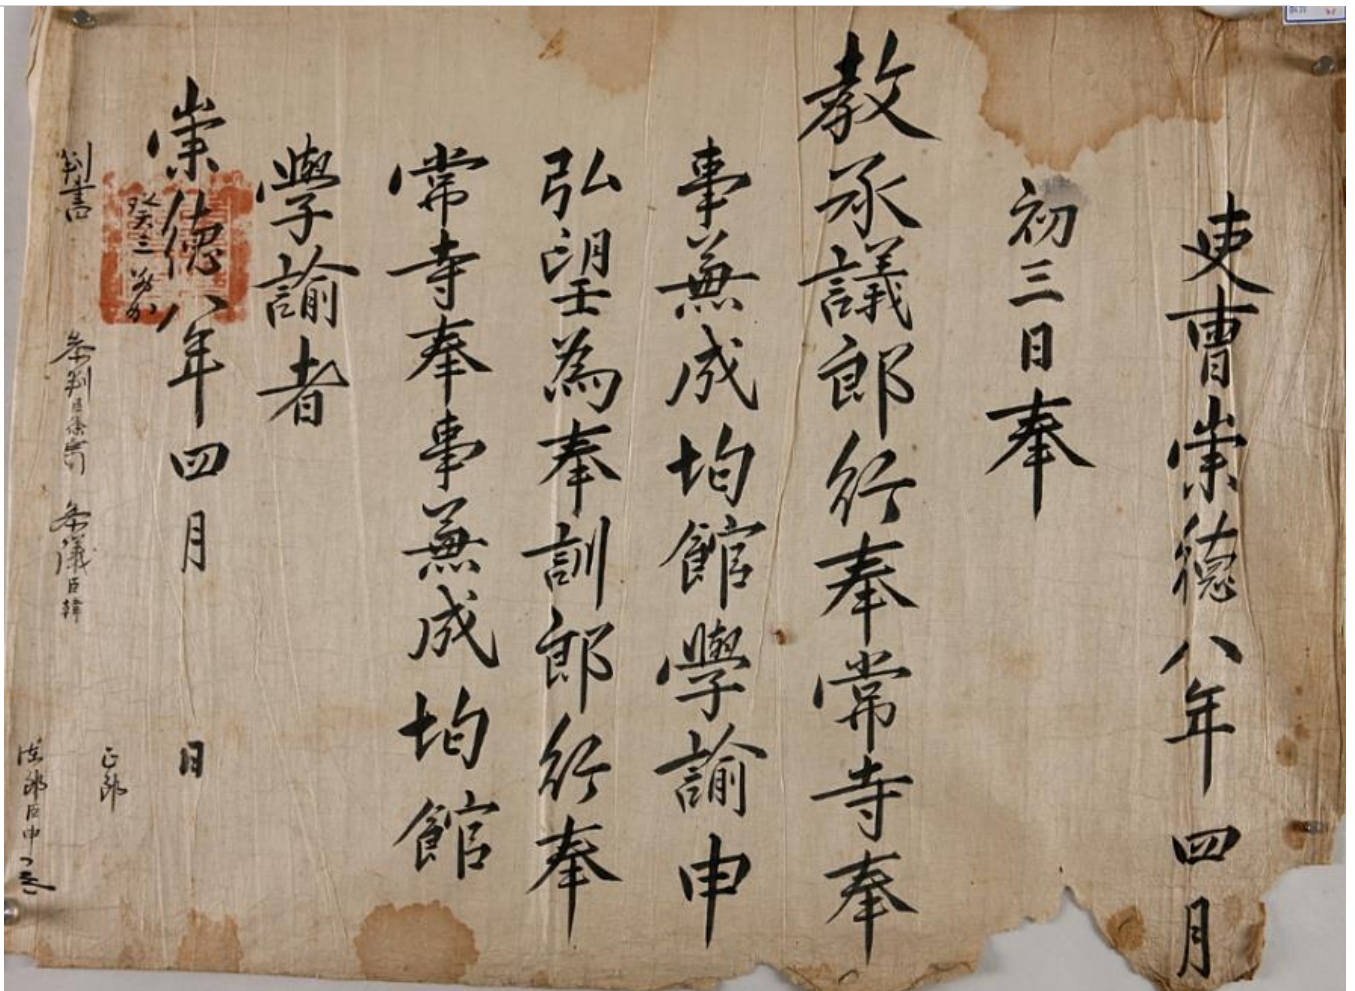 吏曹崇德八年四月
初三日奉
教承議郎行奉常寺奉
事兼成均館學諭申
弘望為奉訓郎行奉
常寺奉事兼成均館
學諭者
崇德八年四月 日
判書 參判臣 參議臣韓
正郎
佐郎臣申